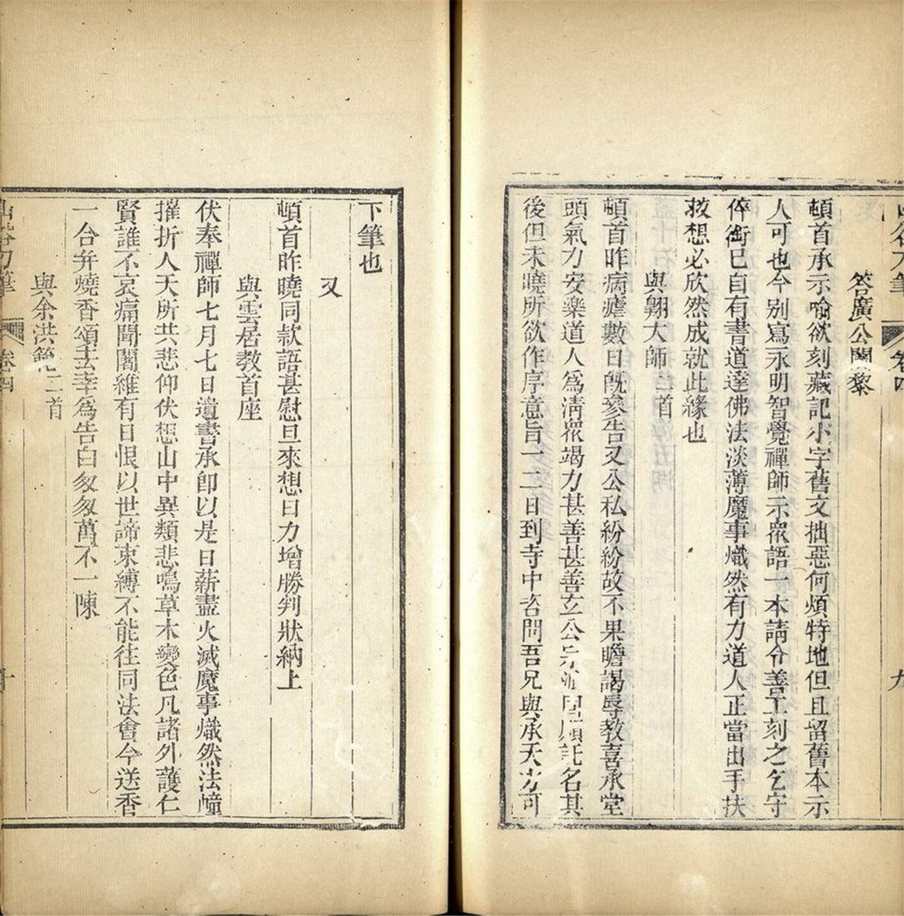 答廣公闍黎
頓首承示喻欲刻藏記小字舊文拙惡何煩特地但且留舊本示
人可也今別寫永明智覺禪師示眾語一本請令善工刻之乞守
倅銜已自有書道達佛法淡薄魔事熾然有力道人正當出手扶
救想必欣然成就此緣也
與翺大師二首
頓首昨病瘧數日既參告又公私紛紛故不果瞻謁辱教喜承堂
頭氣力安樂道人為清眾竭力甚善甚善玄公託名其
後但未曉所欲作序意旨一二日到寺中咨問吾兄與承天方可
山谷刀筆
卷四
九
下筆也
又
頓首昨曉同款語甚慰旦來想日力增勝判狀納上
與雲居教首座
伏奉禪師七月七日遺書承卽以是日薪盡火滅魔事熾然法幢
摧折人天所共悲仰伏想山中異類悲鳴草木變色凡諸外護仁
賢誰不哀痛聞闍維有日恨以世諦束縛不能往同法會今送香
一合并燒香頌去幸為告白匆匆萬不一陳
與余洪範二首
山谷刀筆
卷四
十